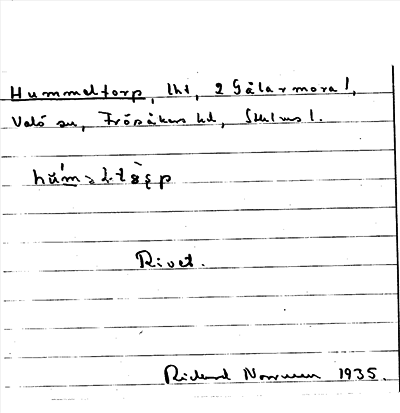 Hummeltorp, lht, 2 Gålarmora!,
Valö sn, Frösåkers hd, Sthlms l.
Rivet.
Richard Norrman 1935.